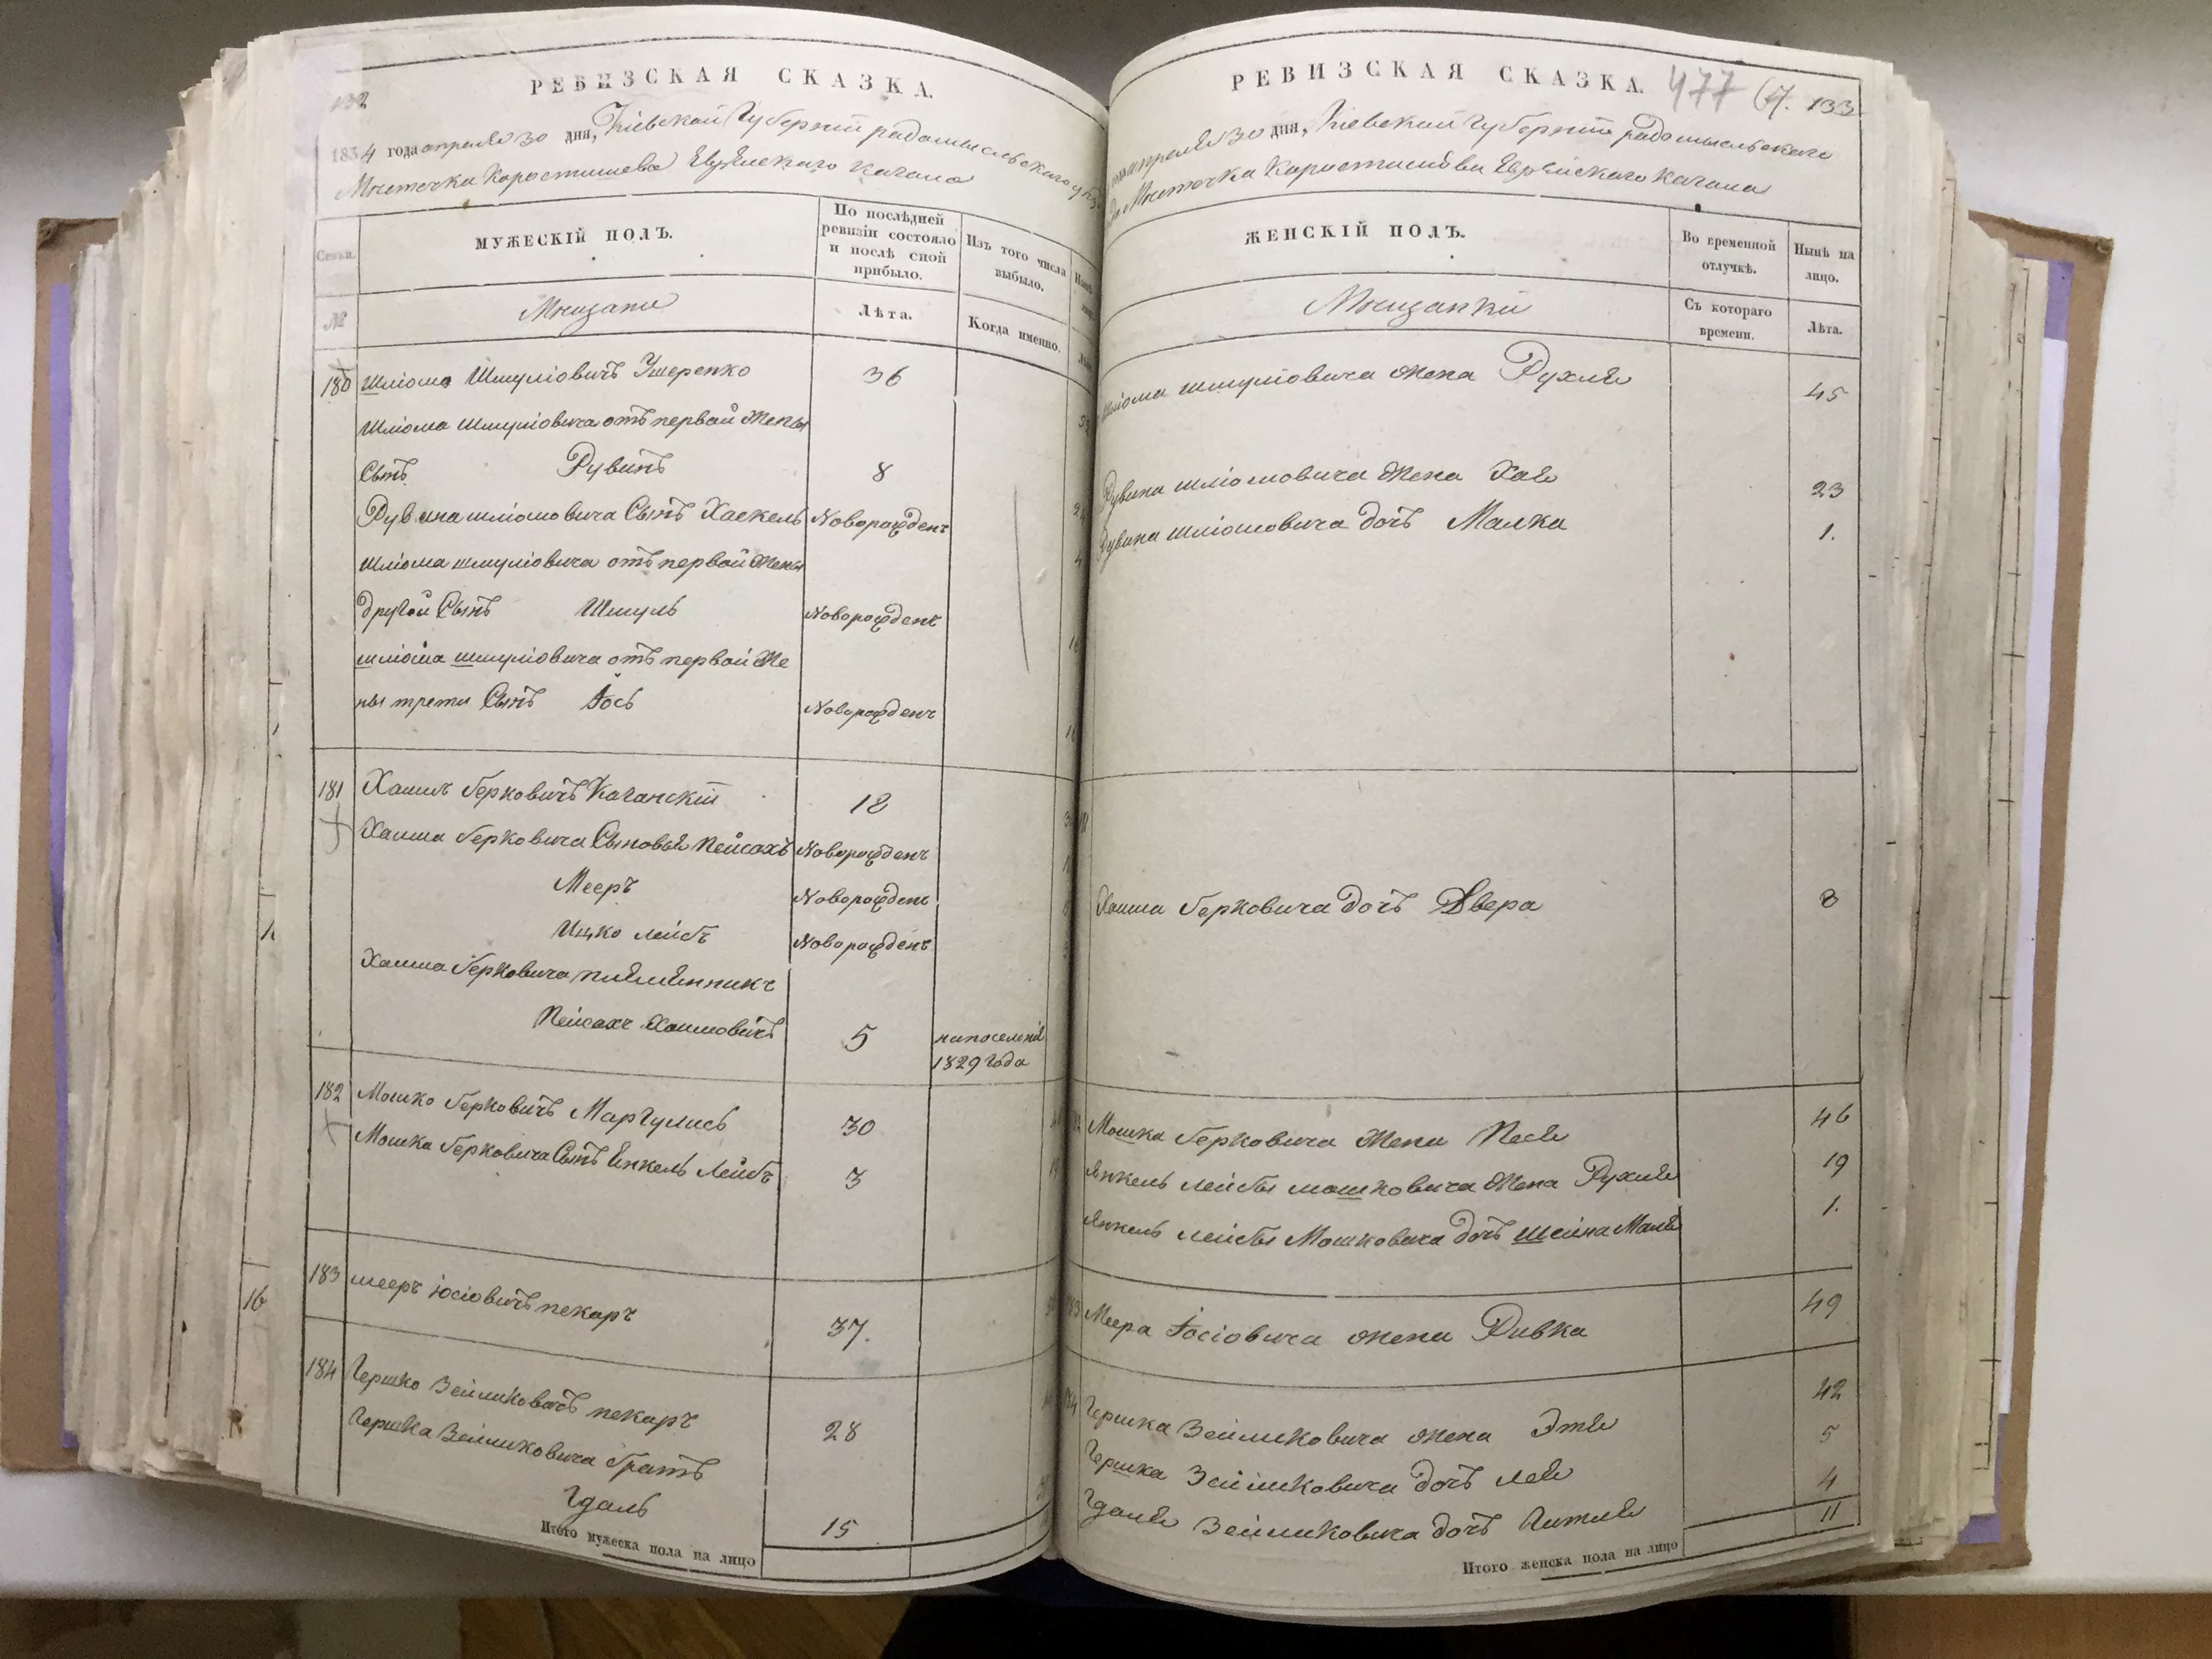 132
РЕВИЗСКАЯ СКАЗКА.
1834 года апреля 30 дня, Кіевской Губерніи радомысльского
Мѣстечка Коростишева Еврейскаго Кагала
Семьи.
МУЖЕСКІЙ ПОЛЪ.
По послѣдней ревизіи состояло и послѣ оной прибыло.
Изъ того числа выбыло.
№
Мѣщане
Лѣта.
Когда именно.
180 Шліома Шмуліовичъ Ушеренко 36
Шліома Шмуліовича отъ первой Жены
Сынъ Рувинъ 8
Рувина шліомовича Сынъ Хаскель Новорожденъ
Шліома шмуліовича отъ первой Жены
другой Сынъ Шмуль Новорожденъ
шліома шмуліовича отъ первой Же
ны трети Сынъ Іось Новорожденъ
181 Хаимъ Берковичъ Каганскій 18
Хаима Берковича Сыновья Пейсахъ Новорожденъ
Мееръ Новорожденъ
Ицко Лейбъ Новорожденъ
Хаима Берковича племянникъ
Пейсахъ Хаимовичъ 5 на поселеніе
1829 Года
182 Мошко Берковичъ Маргулисъ 30
Мошка Берковича Сынъ Янкель Лейбъ 3
183 мееръ іосіовичъ пекаръ 37.
184 Гершко Зейликовичъ пекаръ 28
Гершка Зейликовича братъ
Гдаль 15
Итого мужеска пола на лицо
РЕВИЗСКАЯ СКАЗКА.
477
133
апреля 30 дня, Кіевской Губерніи радомысльского
Мѣстечка Коростишова Еврейскаго Кагала
ЖЕНСКІЙ ПОЛЪ.
Во временной отлучкѣ.
Нынѣ на лицо.
Мѣщанки
Съ котораго времени.
Лѣта.
Шліома шмуліовича жена Рухля 45
Рувина шліомовича жена Хая 23
Рувина шліомовича дочь Малка 1.
Хаима Берковича дочь Двера 8
Мошка Берковича жена Песя 46
Янкель лейбы мошковича жена Рухля 19
Янкель лейбы Мошковича дочь шейна Маля 1.
Меера Іосіовича жена Ривка 49
Гершка Зейликовича жена Этя 42
Гершка Зейликовича дочь лея 5
Гдаля Зейликовича дочь Гитля 4
11
Итого женска пола на лицо
16